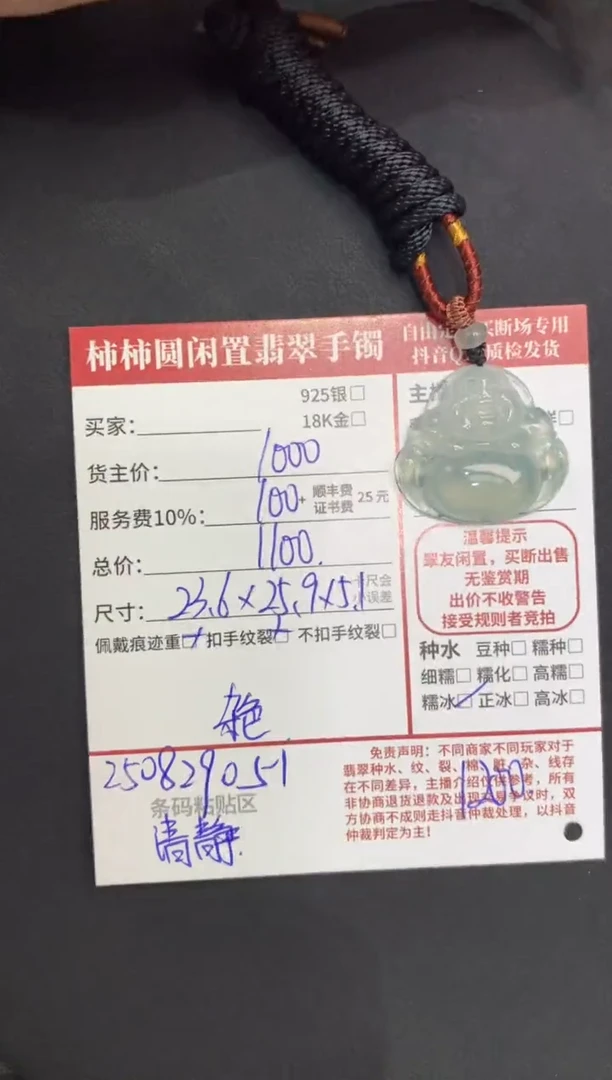 柿柿圆闲置翡翠手镯
自由
买断场专用
抖音Q
质检发货
925银□
18K金□
买家：
货主价：1000
服务费10%：100+ 顺丰费 证书费 25元
总价：1100.
尺寸：23.6×25.9×5.1
卡尺会
小误差
佩戴痕迹重□ 扣手纹裂□ 不扣手纹裂□
杂色
250829051
条码粘贴区
清静
主
样□
温馨提示
翠友闲置，买断出售
无鉴赏期
出价不收警告
接受规则者竞拍
种水 豆种□ 糯种□
细糯□ 糯化□ 高糯□
糯冰☑ 正冰□ 高冰□
免责声明：不同商家不同玩家对于
翡翠种水、纹、裂、棉、脏、杂、线存
在不同差异，主播介绍仅供参考，所有
非协商退货退款及出现交易争议时，双
方协商不成则走抖音仲裁处理，以抖音
仲裁判定为主！
1200